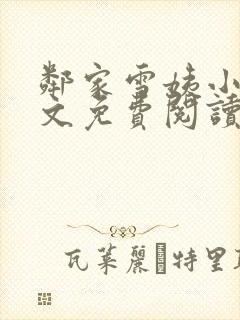 鄰家雪姨小
文免費閱讀
瓦萊麗�特里